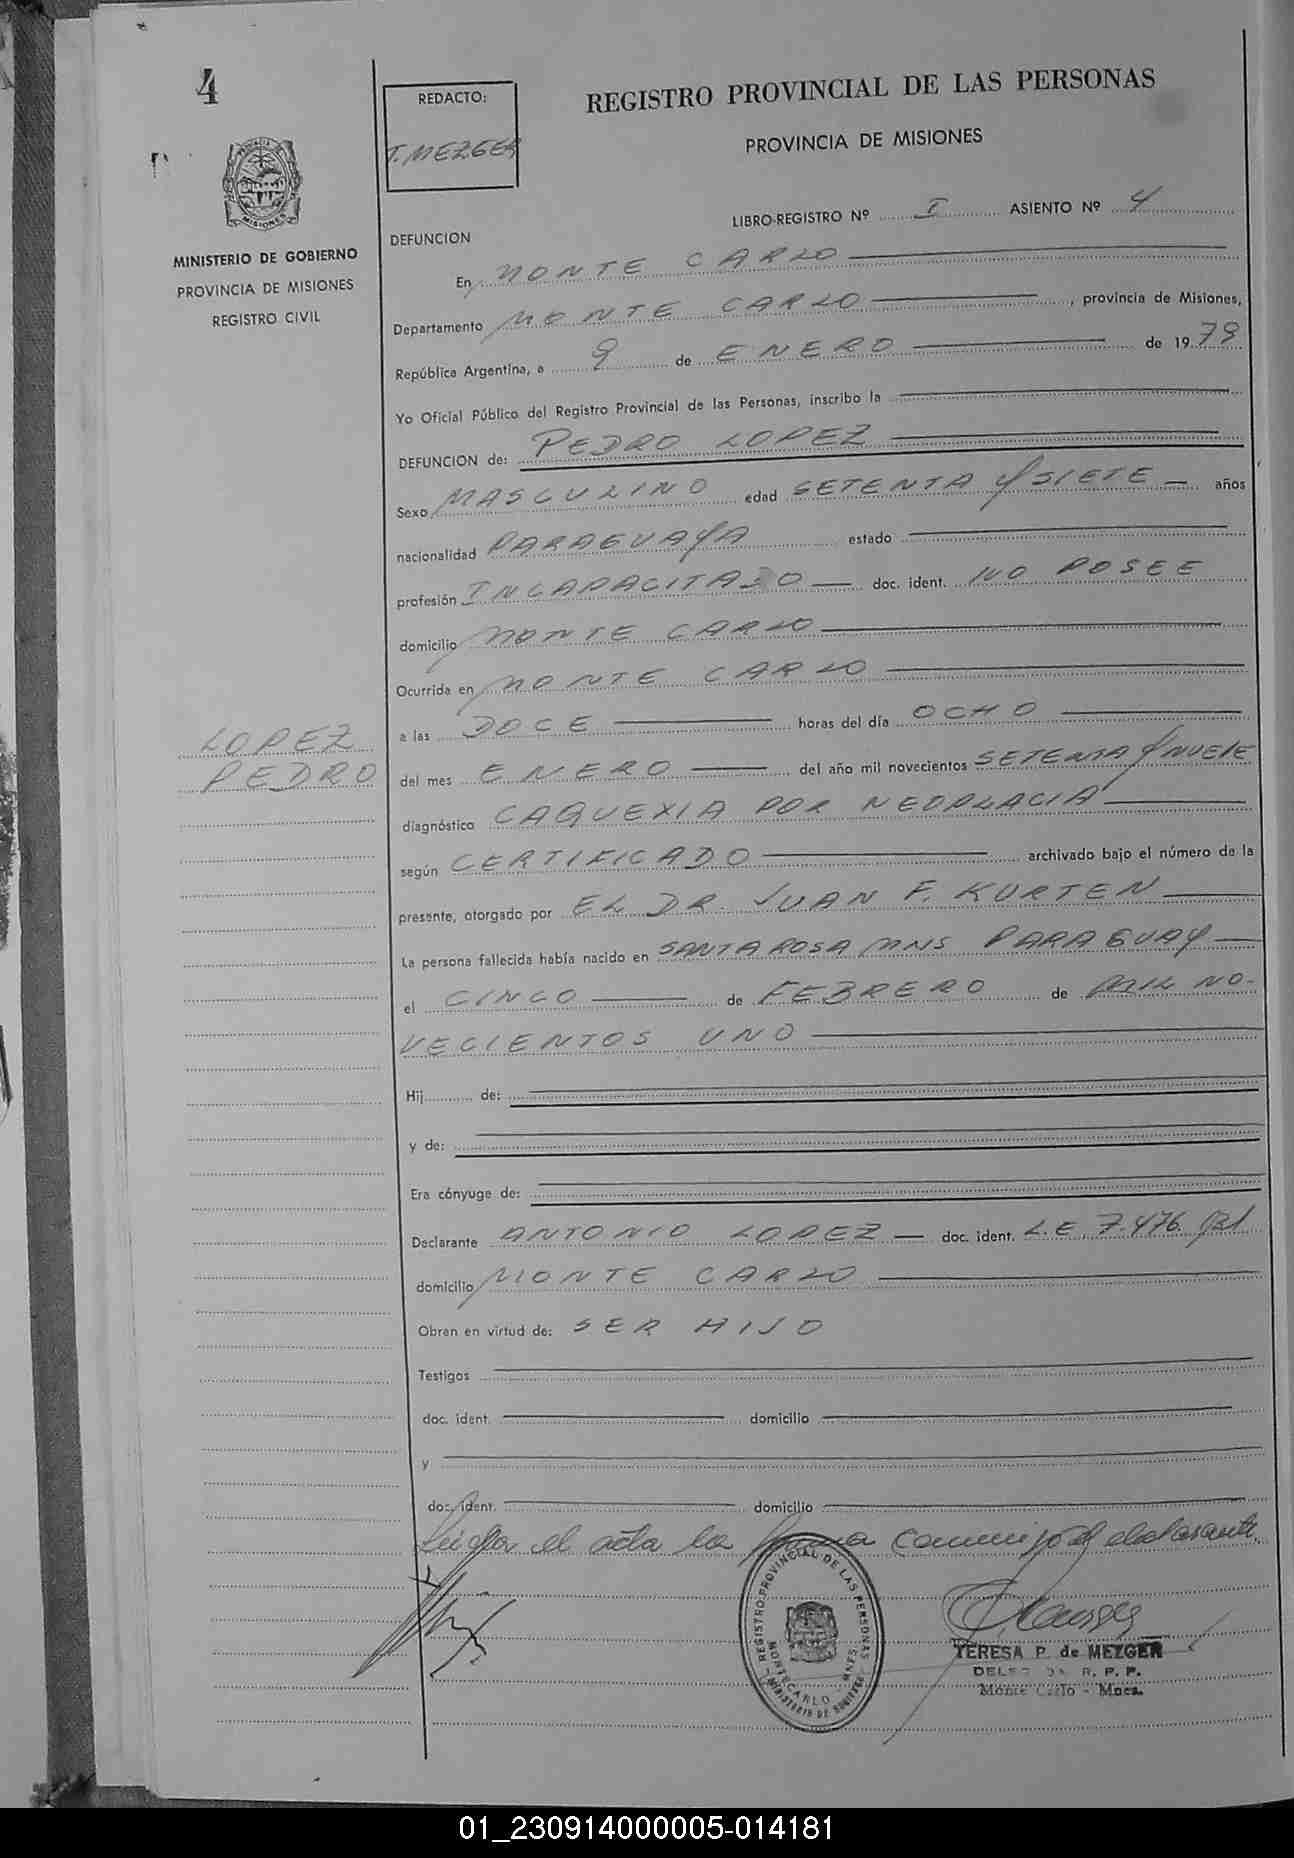 4
REDACTO:
T. MEZGER
REGISTRO PROVINCIAL DE LAS PERSONAS
PROVINCIA DE MISIONES
LIBRO-REGISTRO Nº I ASIENTO Nº 4
MINISTERIO DE GOBIERNO
PROVINCIA DE MISIONES
REGISTRO CIVIL
DEFUNCION
En MONTE CARLO
Departamento MONTE CARLO, provincia de Misiones,
República Argentina, a 9 de ENERO de 1979
Yo Oficial Público del Registro Provincial de las Personas, inscribo la
DEFUNCION de: PEDRO LOPEZ
Sexo MASCULINO edad SETENTA Y SIETE años
nacionalidad PARAGUAYA estado
profesión INCAPACITADO doc. ident. NO POSEE
domicilio MONTE CARLO
Ocurrida en MONTE CARLO
a las DOCE horas del día OCHO
LOPEZ
PEDRO
del mes ENERO del año mil novecientos SETENTA Y NUEVE
diagnóstico CAQUEXIA POR NEOPLACIA
según CERTIFICADO archivado bajo el número de la
presente, otorgado por EL DR. JUAN F. KURTEN
La persona fallecida había nacido en SANTA ROSA MNS PARAGUAY
el CINCO de FEBRERO de MIL NO-
VECIENTOS UNO
Hij de:
y de:
Era cónyuge de:
Declarante ANTONIO LOPEZ doc. ident. L.E. 7.476.
domicilio MONTE CARLO
Obran en virtud de: SER HIJO
Testigos
doc. ident. domicilio
y
doc. ident. domicilio
Leida el acta la firma conmigo el declarante
REGISTRO PROVINCIAL DE LAS PERSONAS
MONTECARLO - MNES.
MINISTERIO DE GOBIERNO
TERESA P. de MEZGER
R. P. P.
Monte Carlo - Mnes.
01_230914000005-014181